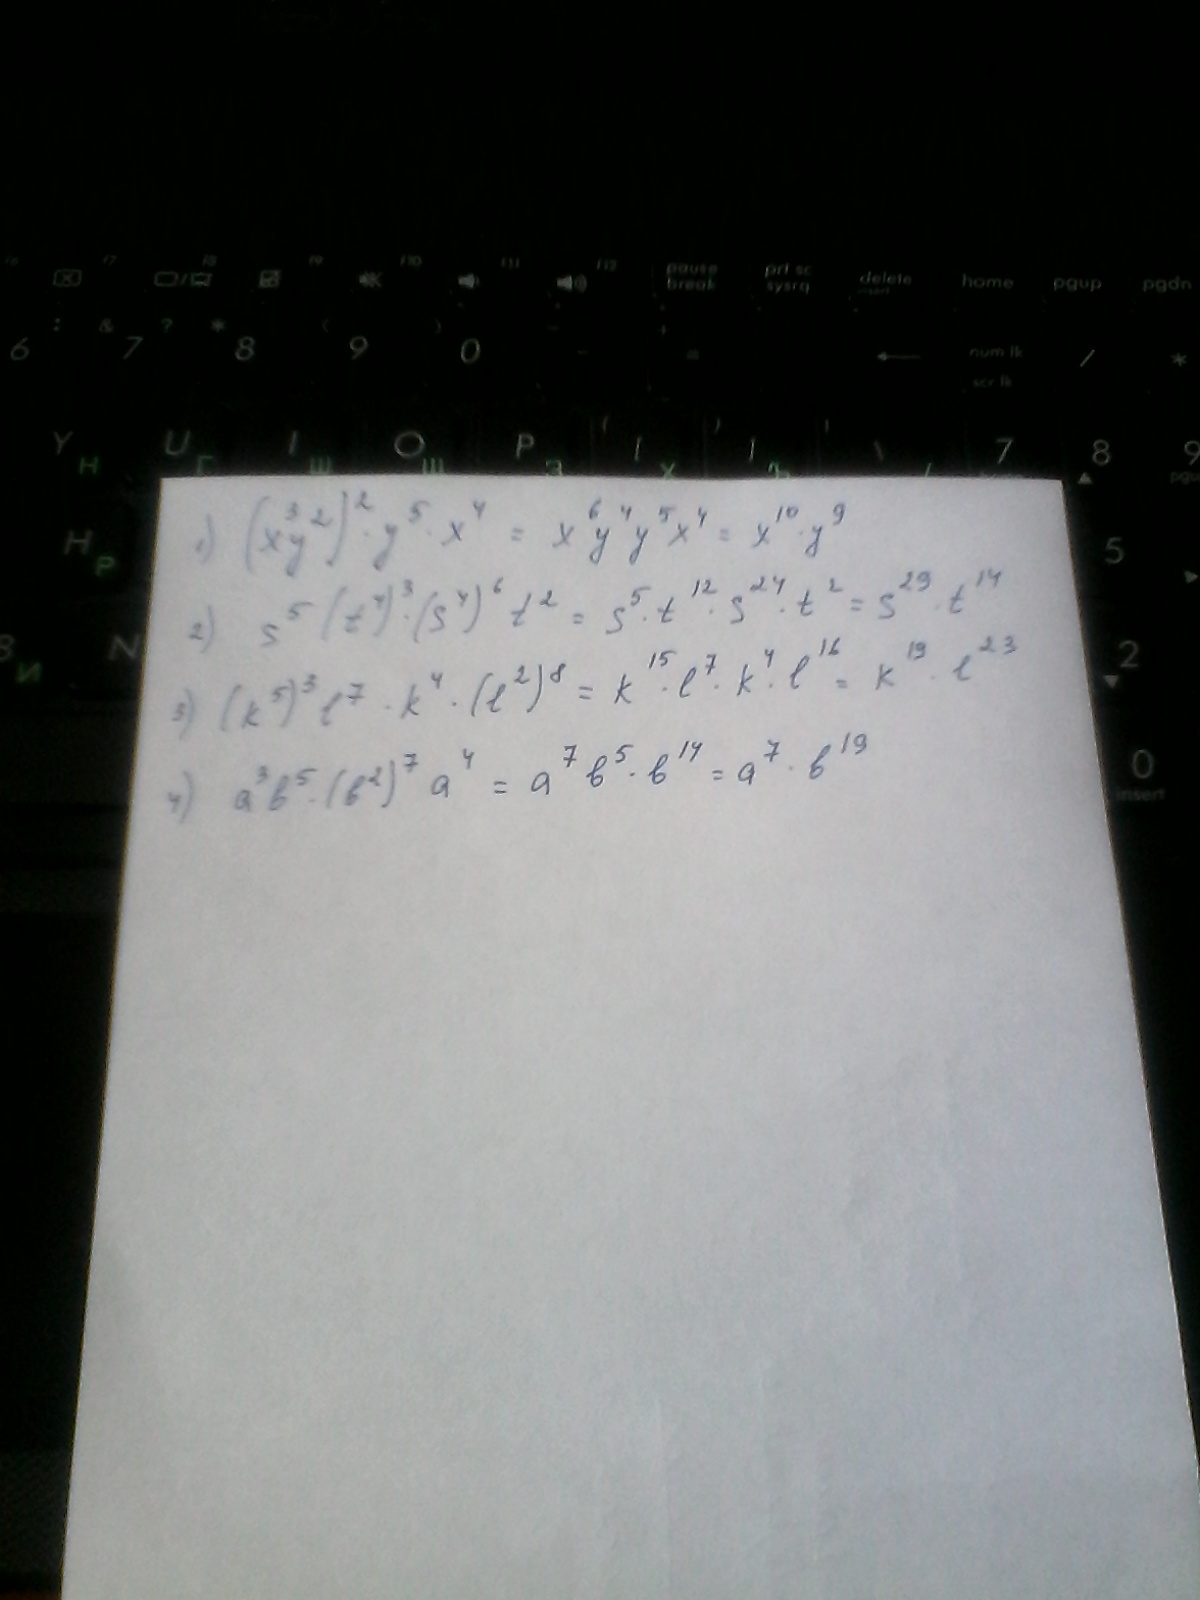 f6 f7 f8 f9 f10 f11 f12 pause break prt sc sysrq delete home pgup pgdn
: & ? * ( ) +
6 7 8 9 0 - = ← num lk scr lk / *
Y Н U Г I Ш O Щ P З [ Х ] Ъ \ / 7 8 9
H Р 5
И N 2
0 insert
1) (x³y²)² · y⁵ · x⁴ = x⁶y⁴y⁵x⁴ = x¹⁰ · y⁹
2) s⁵(t⁴)³ · (s⁴)⁶ t² = s⁵ · t¹² · s²⁴ · t² = s²⁹ · t¹⁴
3) (k⁵)³ l⁷ · k⁴ · (l²)⁸ = k¹⁵ · l⁷ · k⁴ · l¹⁶ = k¹⁹ · l²³
4) a³b⁵ · (b²)⁷ a⁴ = a⁷b⁵ · b¹⁴ = a⁷ · b¹⁹